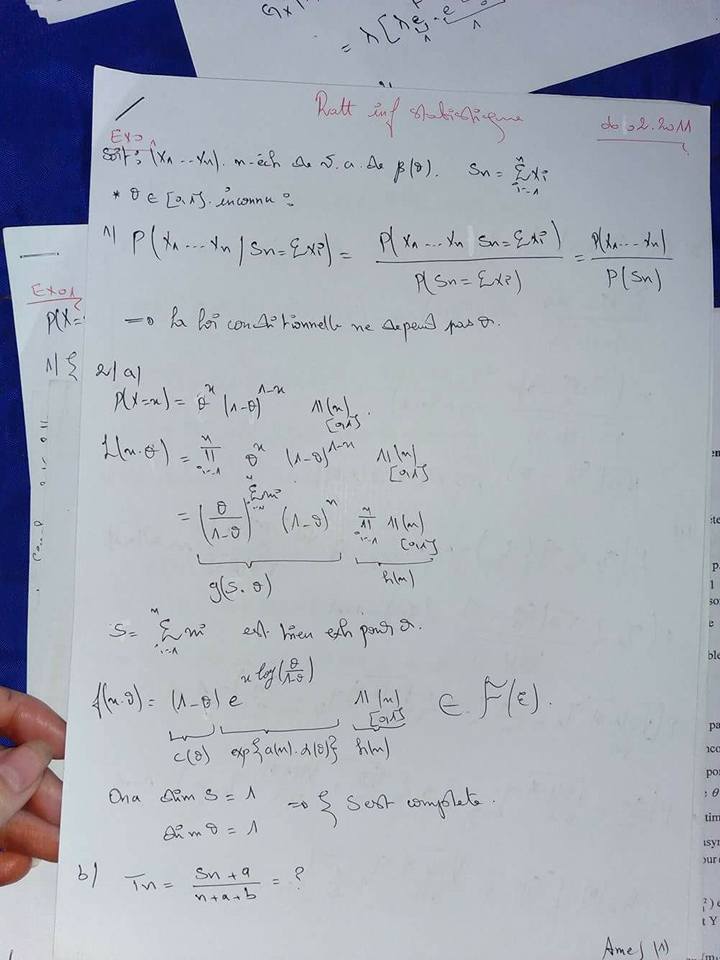 Ratt inf statistique
02.2011
Exo 1
Soit: (x1 ... xn). n-éch de v.a. de β(θ). Sn = Σ_{i=1}^{n} xi
* θ ∈ [0,1]. inconnu :
1) P(x1 ... xn / Sn = Σxi) = P(x1 ... xn, Sn = Σxi) / P(Sn = Σxi) = P(x1 ... xn) / P(Sn)
=> la loi conditionnelle ne depend pas θ.
2/ a)
P(X=x) = θ^x (1-θ)^{1-x} 1(x)_{[0,1]}.
L(x.θ) = Π_{i=1}^{n} θ^x (1-θ)^{1-x} 1(x)_{[0,1]}
= (θ/(1-θ))^{Σ_{i=1}^{n} xi} (1-θ)^n Π_{i=1}^{n} 1(x)_{[0,1]}
g(S.θ) h(x)
S = Σ_{i=1}^{n} xi est bien exh pour θ.
f(x.θ) = (1-θ) e^{x log(θ/(1-θ))} 1(x)_{[0,1]} ∈ F(ε).
c(θ) exp{a(x).α(θ)} h(x)
On a dim S = 1 => { S est complete.
dim θ = 1
b) Tn = (Sn + a) / (n+a+b) = ?
Exo1
P(X=
1) {